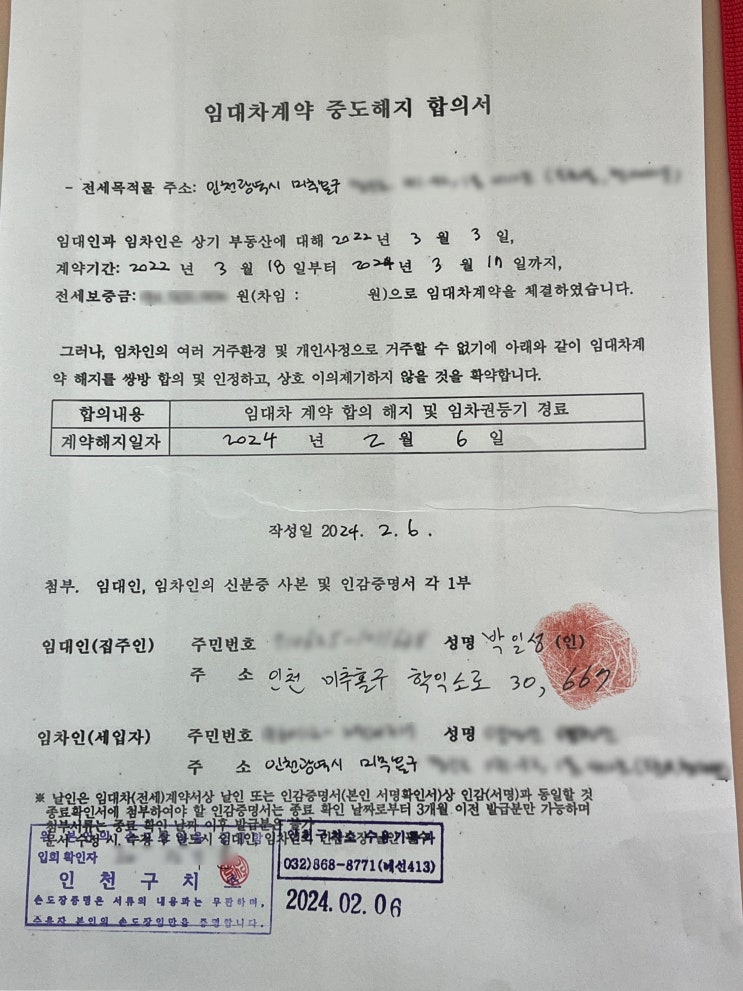 임대차계약 중도해지 합의서
- 전세목적물 주소: 인천광역시 미추홀구
임대인과 임차인은 상기 부동산에 대해 2022년 3 월 3 일,
계약기간: 2022 년 3 월 18 일부터 2024년 3 월 17 일까지,
전세보증금: 원(차임 : 원)으로 임대차계약을 체결하였습니다.
그러나, 임차인의 여러 거주환경 및 개인사정으로 거주할 수 없기에 아래와 같이 임대차계
약 해지를 쌍방 합의 및 인정하고, 상호 이의제기하지 않을 것을 확약합니다.
합의내용 임대차 계약 합의 해지 및 임차권등기 경료
계약해지일자 2024 년 2 월 6 일
작성일 2024. 2. 6.
첨부. 임대인, 임차인의 신분증 사본 및 인감증명서 각 1부
임대인(집주인) 주민번호 성명 박일성 (인)
주 소 인천 미추홀구 학익소로 30, 667
임차인(세입자) 주민번호 성명
주 소 인천광역시 미추홀구
※ 날인은 임대차(전세)계약서상 날인 또는 인감증명서(본인 서명확인서)상 인감(서명)과 동일할 것
종료확인서에 첨부하여야 할 인감증명서는 종료 확인 날짜로부터 3개월 이전 발급분만 가능하며
첨부서류는 종료 확인 날짜 이후 발급분은
문서 수정 시, 수정 후 반드시 임대인, 임차인의
입회 확인자
인 천 구 치 소
손도장증명은 서류의 내용과는 무관하며,
수용자 본인의 손도장임만을 증명합니다.
인천구치소 수용기록과
032)868-8771(내선413)
2024.02.06